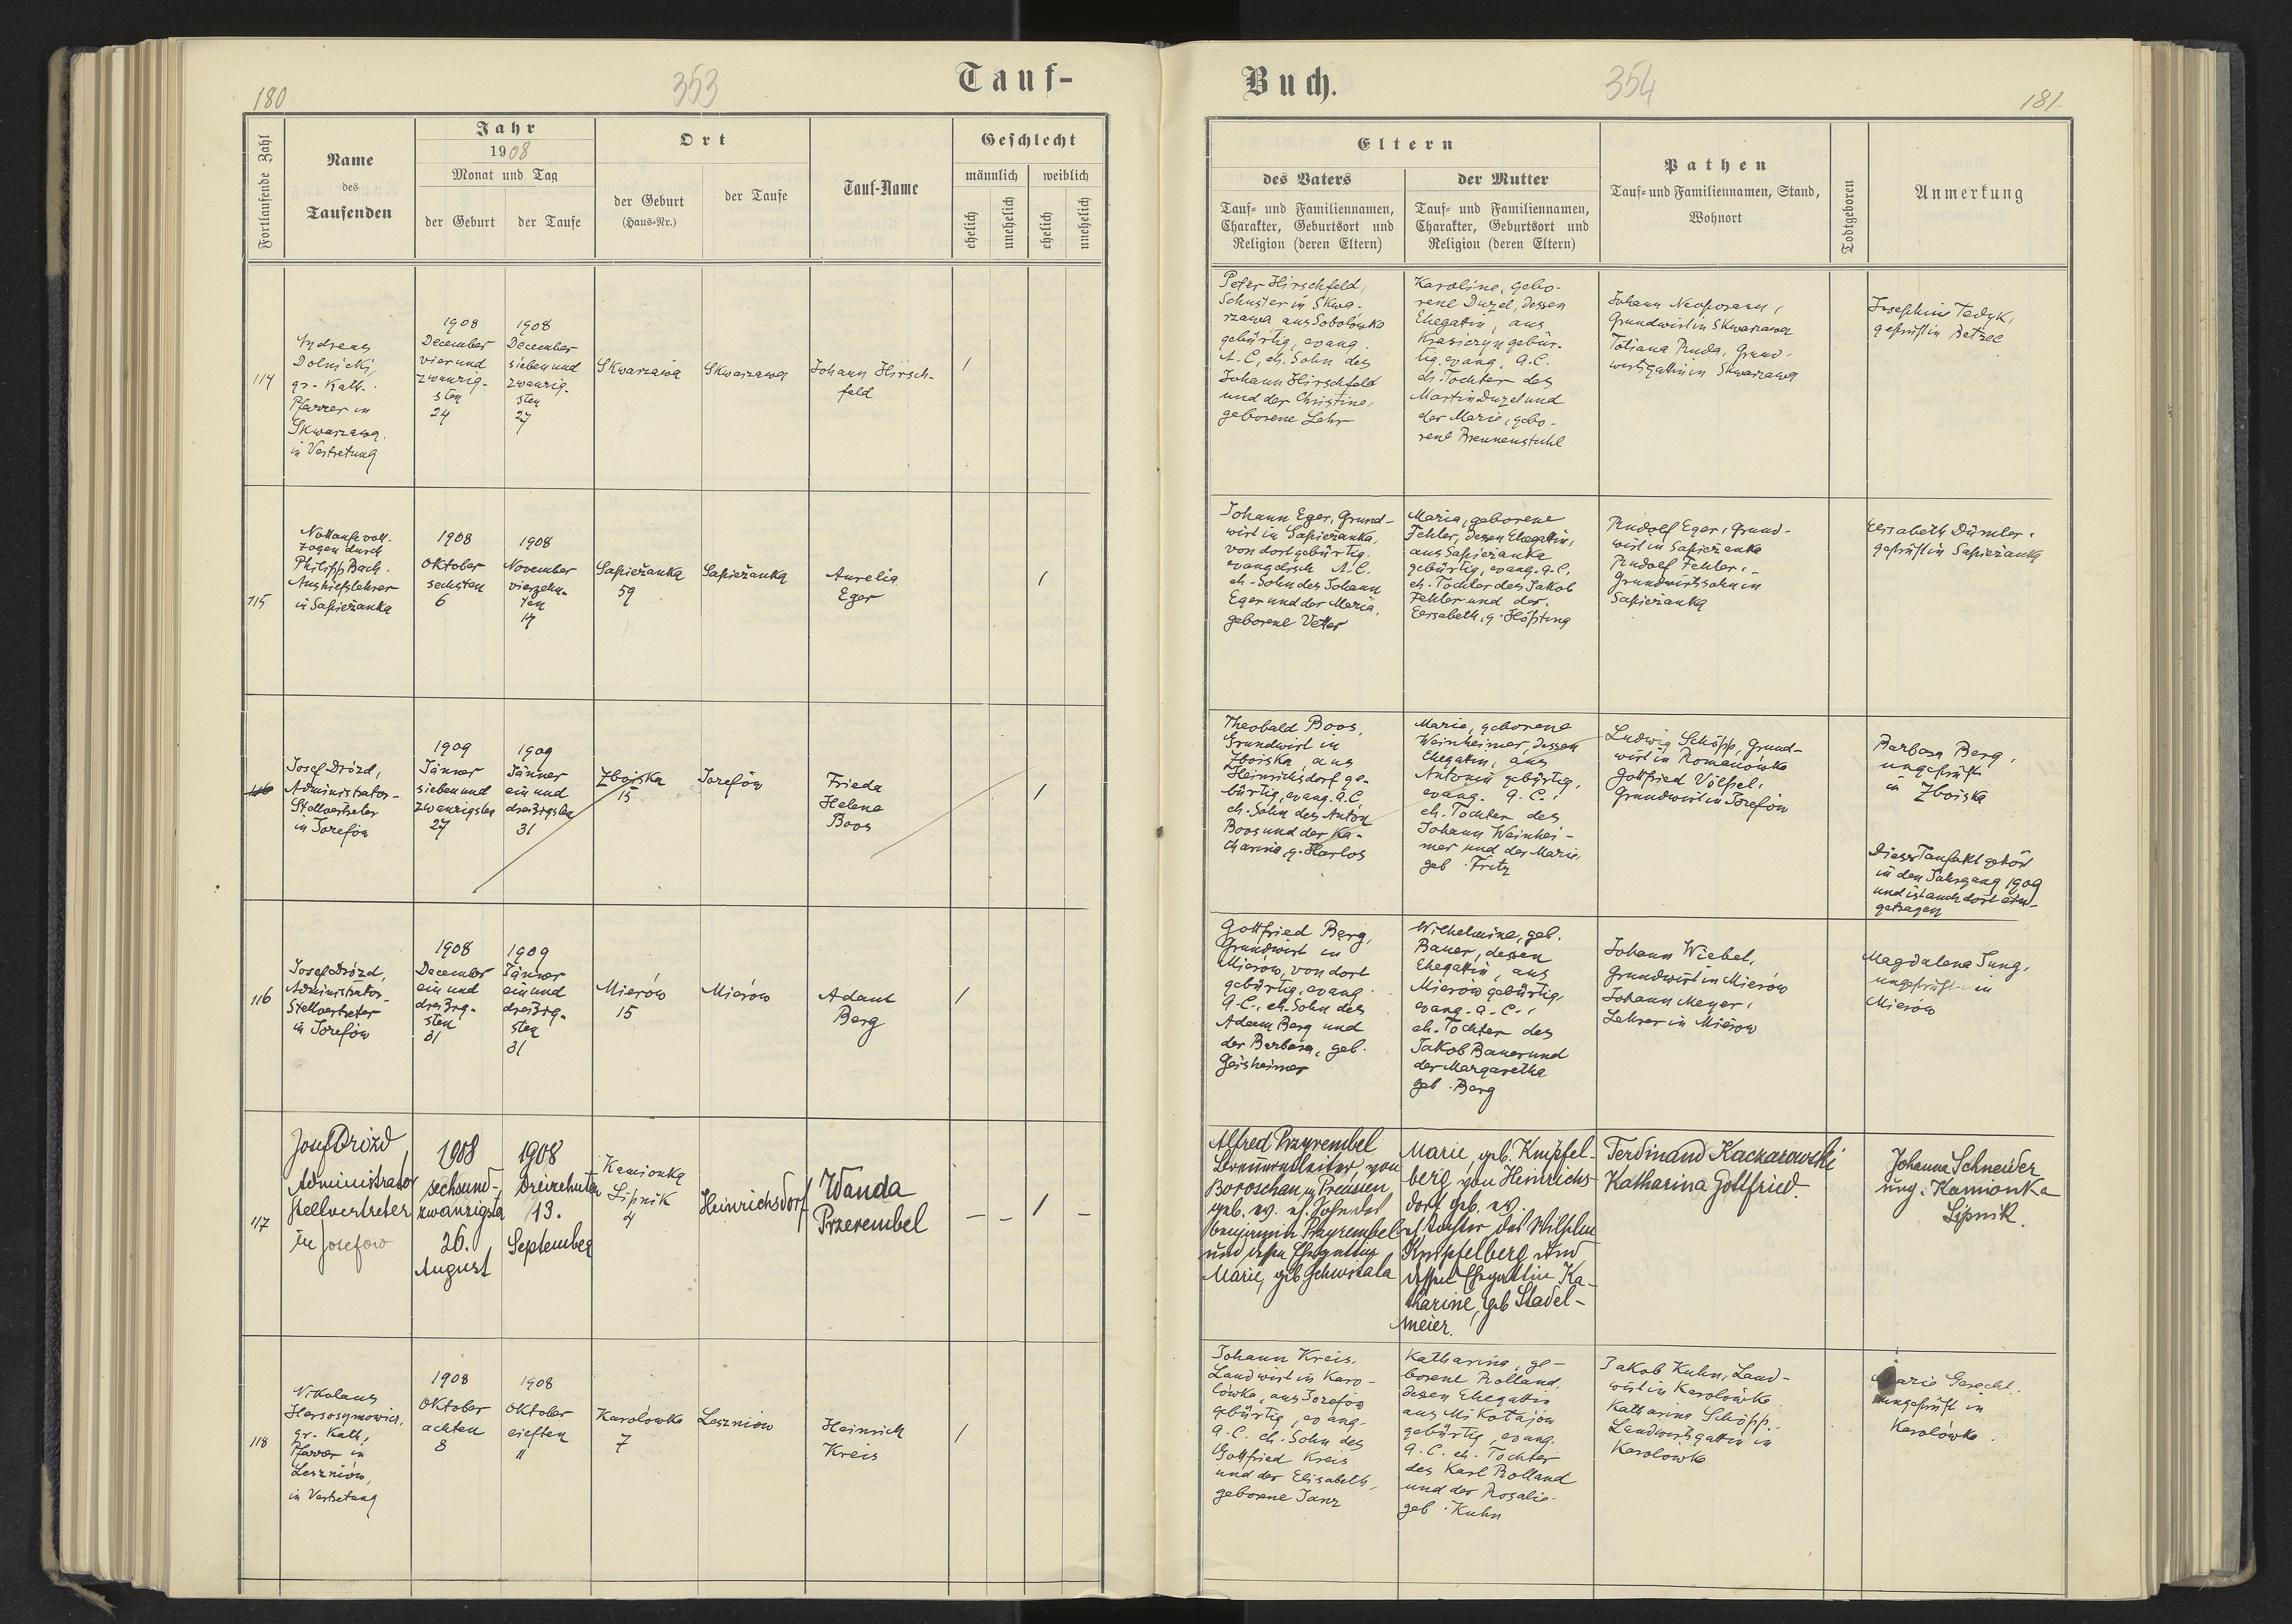 180
353
Tauf-
Fortlaufende Zahl
Name
des
Taufenden
Jahr
1908
Monat und Tag
der Geburt
der Taufe
Ort
der Geburt
(Haus-Nr.)
der Taufe
Tauf-Name
Geschlecht
männlich
weiblich
ehelich
unehelich
ehelich
unehelich
114
Andreas
Dolnicki,
gr.-Kath.
Pfarrer in
Skwarzawa
in Vertretung
1908
December
vierund
zwanzig-
sten
24
1908
December
siebenund
zwanzig-
sten
27
Skwarzawa
Skwarzawa
Johann Hirsch-
feld
/
115
Nottaufe voll-
zogen durch
Philipp Bach
Aushilfslehrer
in Sapieżanka
1908
Oktober
sechsten
6
1908
November
vierzehn-
ten
14
Sapieżanka
59
Sapieżanka
Aurelia
Eger
/
116
Josef Drózd,
Administrator-
Stellvertreter
in Josefów
1909
Jänner
siebenund
zwanzigsten
27
1909
Jänner
einund
dreißigsten
31
Zboiska
15
Josefów
Frieda
Helene
Boos
/
116
Josef Drózd,
Administrator-
Stellvertreter
in Josefów
1908
December
einund
dreißig-
sten
31
1909
Jänner
einund
dreißig-
sten
31
Mierów
15
Mierów
Adam
Berg
/
117
Josef Drózd
Administrator
Stellvertreter
in Josefow
1908
sechsund-
zwanzigsten
26.
August
1908
Dreizehnten
13.
September
Kamionka
Lipnik
4
Heinrichsdorf
Wanda
Przerembel
– – / –
118
Nikolaus
gr.-Kath.
Pfarrer in
Leszniów,
in Vertretung
1908
Oktober
achten
8
1908
Oktober
eilften
11
Karolówka
7
Leszniów
Heinrich
Kreis
/
Buch.
354
181.
Eltern
des Vaters
Tauf- und Familiennamen,
Charakter, Geburtsort und
Religion (deren Eltern)
der Mutter
Tauf- und Familiennamen,
Charakter, Geburtsort und
Religion (deren Eltern)
Pathen
Tauf- und Familiennamen, Stand,
Wohnort
Todtgeboren
Anmerkung
Peter Hirschfeld,
Schuster in Skwa-
rzawa aus Sobolówka
gebürtig, evang.
A.C., eh. Sohn des
Johann Hirschfeld
und der Christine,
geborene Lehr
Karoline, gebo-
rene Duzel, dessen
Ehegattin, aus
Krasiczyn gebür-
tig, evang. A.C.
eh. Tochter des
Martin Duzel und
der Marie, gebo-
rene Brennenstuhl
Johann
Grundwirt in Skwarzawa
Tatiana Ruda, Grund-
wirtsgattin in Skwarzawa
Josephine
geprüft in
Johann Eger, Grund-
wirt in Sapieżanka,
von dort gebürtig,
evangelisch A.C.
eh. Sohn des Johann
Eger und der Maria,
geborene Vetter
Maria, geborene
Fehler, dessen Ehegattin,
aus Sapieżanka
gebürtig, evang. A.C.
eh. Tochter des Jakob
Fehler und der
Elisabeth, g.
Rudolf Eger, Grund-
wirt in Sapieżanka
Rudolf Fehler,
Grundwirtssohn in
Sapieżanka
Elisabeth Dämler,
geprüft in Sapieżanka
Theobald Boos,
Grundwirt in
Zboiska, aus
Heinrichsdorf ge-
bürtig, evang. A.C.
eh. Sohn des Anton
Boos und der Ka-
tharina g. Harlos
Marie, geborene
Weinheimer, dessen
Ehegattin, aus
Antonin gebürtig,
evang. A.C.,
eh. Tochter des
Johann Weinhei-
mer und der Marie,
geb. Fritz
Ludwig Schöpp, Grund-
wirt in Romanówka
Gottfried Völpel,
Grundwirt in Josefów
Barbara Berg,
ungeprüft
in Zboiska
Dieser Taufakt gehört
in den Jahrgang 1909
und ist auch dort ein-
getragen
Gottfried Berg,
Grundwirt in
Mierów, von dort
gebürtig, evang.
A.C., eh. Sohn des
Adam Berg und
der Barbara, geb.
Geisheimer
Wilhelmine, geb.
Bauer, dessen
Ehegattin, aus
Mierów gebürtig,
evang. A.C.,
eh. Tochter des
Jakob Bauer und
der Margaretha
geb. Berg
Johann Wiebel,
Grundwirt in Mierów
Johann Meyer,
Lehrer in Mierów
Magdalena Jung,
ungeprüft in
Mierów
Alfred Przyrembel
Brennereileiter, von
Boroschau in Preussen
geb. ev. eh. Sohn des
Benjamin Przyrembel
und dessen Ehegattin
Marie, geb. Schwirala
Marie, geb. Knipfel-
berg von Heinrichs-
dorf geb. ev.
eh. Tochter des Wilhelm
Knipfelberg und
dessen Ehegattin Ka-
tharine, geb. Stadel-
meier.
Ferdinand Kaczarowski
Katharina Gottfried.
Johanna Schneider
ung. Kamionka
Lipnik.
Johann Kreis,
Landwirt in Karo-
lówka, aus Josefów
gebürtig, evang.
A.C. eh. Sohn des
Gottfried Kreis
und der Elisabeth,
geborene Janz
Katharina, ge-
borene Rolland,
dessen Ehegattin
aus Mikołajów
gebürtig, evang.
A.C. eh. Tochter
des Karl Rolland
und der Rosalie
geb. Kuhn
Jakob Kuhn, Land-
wirt in Karolówka
Katharina Schöpp,
Landwirtsgattin in
Karolówka
Marie Gerecht,
ungeprüft in
Karolówka.